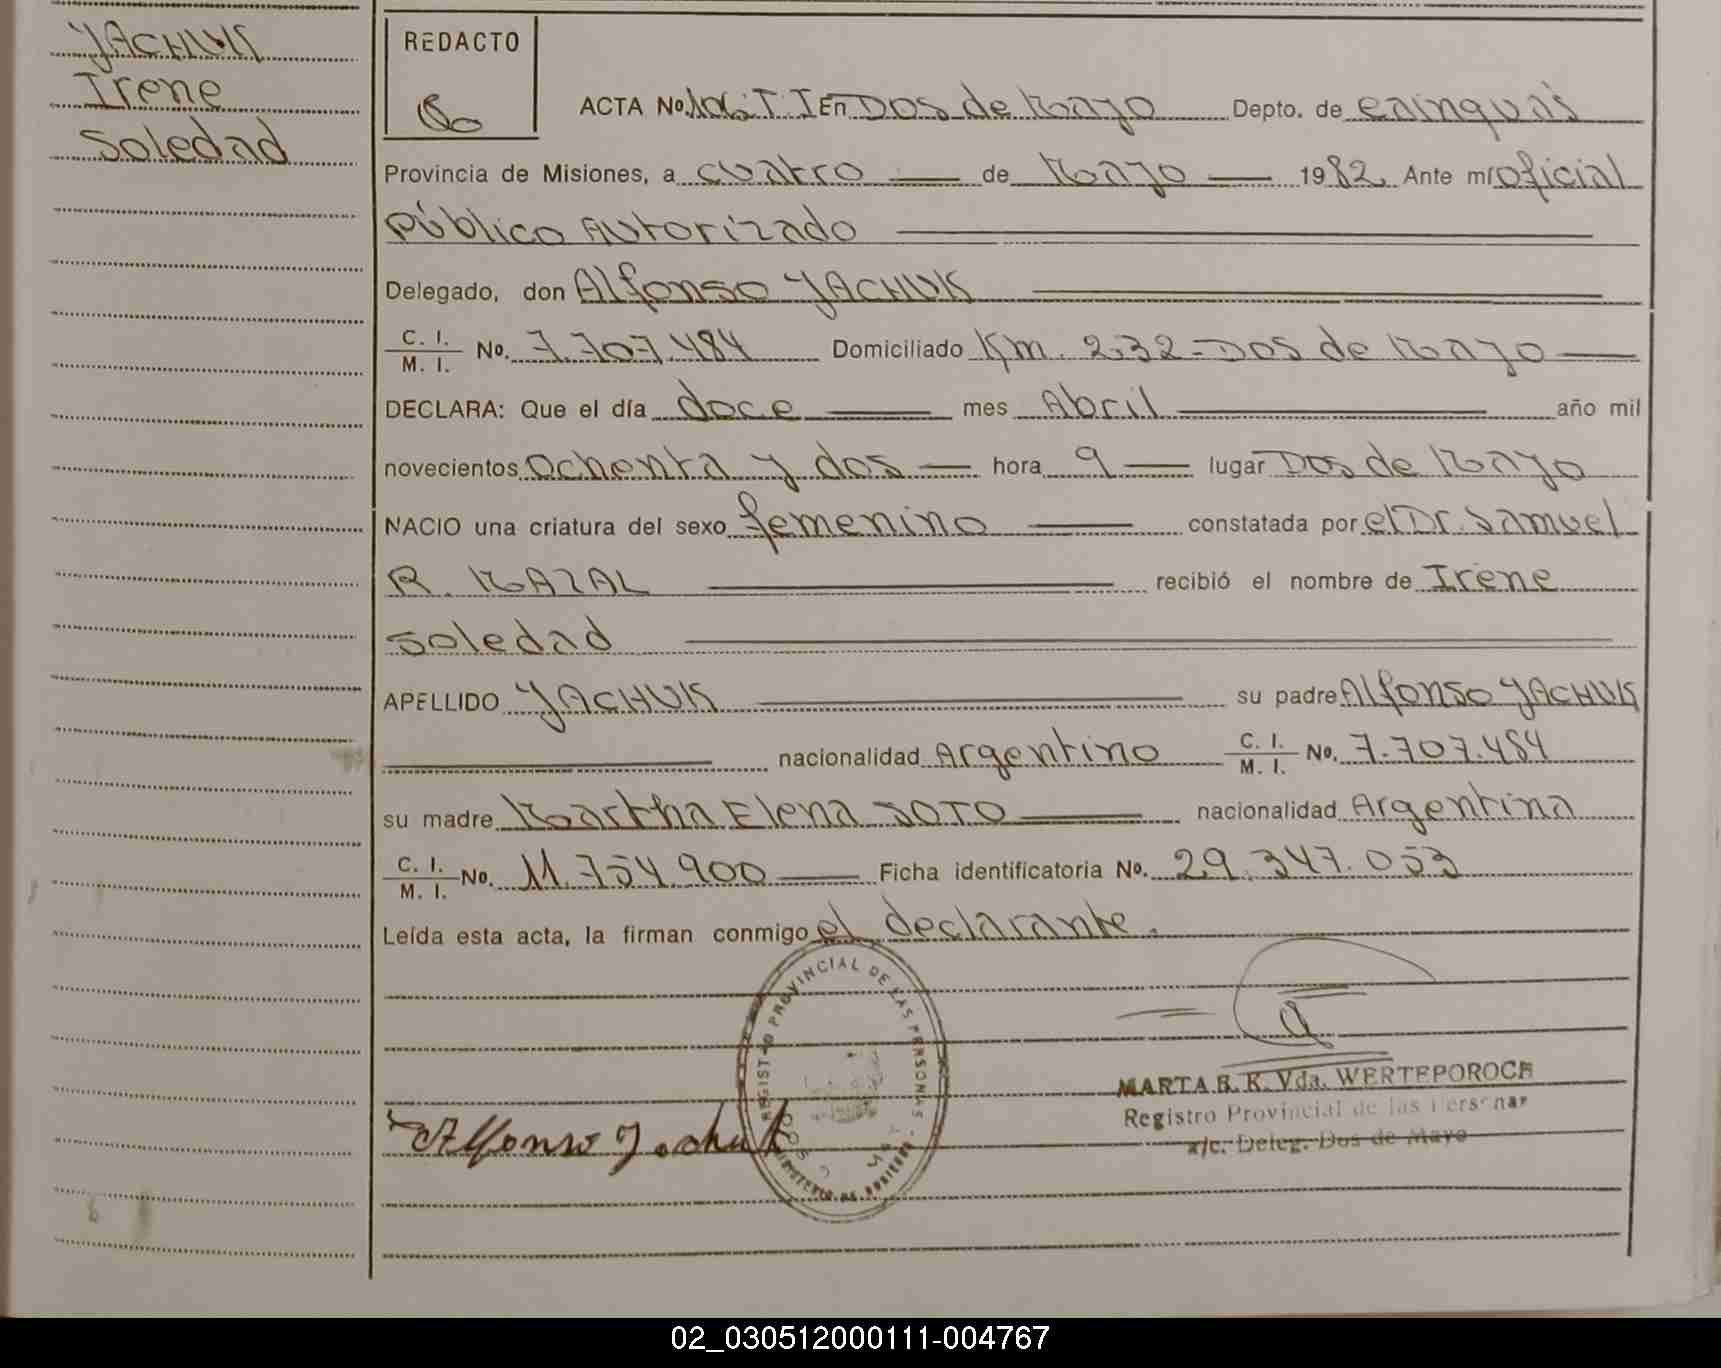 YACHUK
Irene
Soledad
REDACTO
ACTA No. 106 T I En Dos de Mayo Depto. de Cainguás
Provincia de Misiones, a cuatro de Mayo 1982 Ante mí oficial
Público Autorizado
Delegado, don Alfonso YACHUK
C. I.
M. I. No. 7.707.484 Domiciliado Km. 232-Dos de Mayo
DECLARA: Que el día doce mes Abril año mil
novecientos ochenta y dos hora 9 lugar Dos de Mayo
NACIO una criatura del sexo femenino constatada por el Dr. Samuel
R. MAZAL recibió el nombre de Irene
Soledad
APELLIDO YACHUK su padre Alfonso YACHUK
nacionalidad Argentino C. I.
M. I. No. 7.707.484
su madre Martha Elena SOTO nacionalidad Argentina
C. I.
M. I. No. 11.754.900 Ficha identificatoria No. 29.347.053
Leída esta acta, la firman conmigo el declarante.
REGISTRO PROVINCIAL DE LAS PERSONAS
MARTA R. K. Vda. WERTEPOROCH
Registro Provincial de las Personas
a/c. Deleg. Dos de Mayo
Alfonso Yachuk
02_030512000111-004767